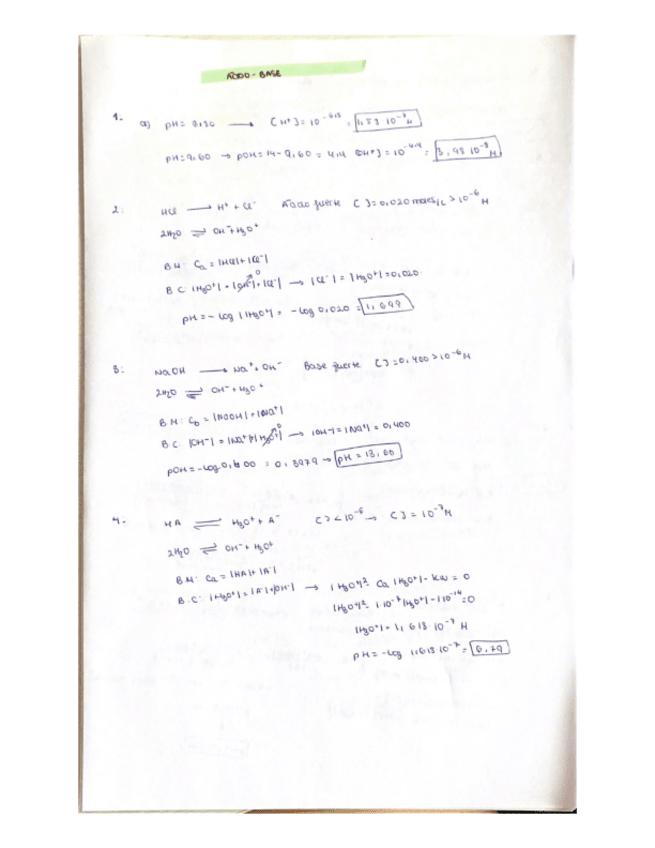 ÁCIDO-BASE
1. a) pH = 9,80 → [H+] = 10^-9,8 = 10^-7 M
pH = 9,60 → pOH = 14 - 9,60 = 4,4 10^-4,4 = 3,98 10 M
2: HCl → H+ + Cl- Ácido fuerte [ ] = 0,020 moles/L > 10^-6 M
2H2O ⇌ OH- + H3O+
B.M: Ca = |HCl| + |Cl-|
B.C: |H3O+| = |OH-| + |Cl-| → |Cl-| = |H3O+| = 0,020
pH = - log |H3O+| = - log 0,020 = 1,699
3: NaOH → Na+ + OH- Base fuerte [ ] = 0,400 > 10^-6 M
2H2O ⇌ OH- + H3O+
B.M: Cb = |NaOH| + |Na+|
B.C: |OH-| = |Na+| + |H3O+| → |OH-| = |Na+| = 0,400
pOH = -log = 0,3979 → pH = 13,60
4. HA ⇌ H3O+ + A- [ ] < 10^-6 → [ ] = 10^-7 M
2H2O ⇌ OH- + H3O+
B.M: Ca = |HA| + |A-|
B.C: |H3O+| = |A-| + |OH-| → |H3O+|² - Ca |H3O+| - Kw = 0
|H3O+|² - 1·10^-7 |H3O+| - 1·10^-14 = 0
|H3O+| = 1,618·10^-7 M
pH = -log 1,618·10^-7 = 6,79